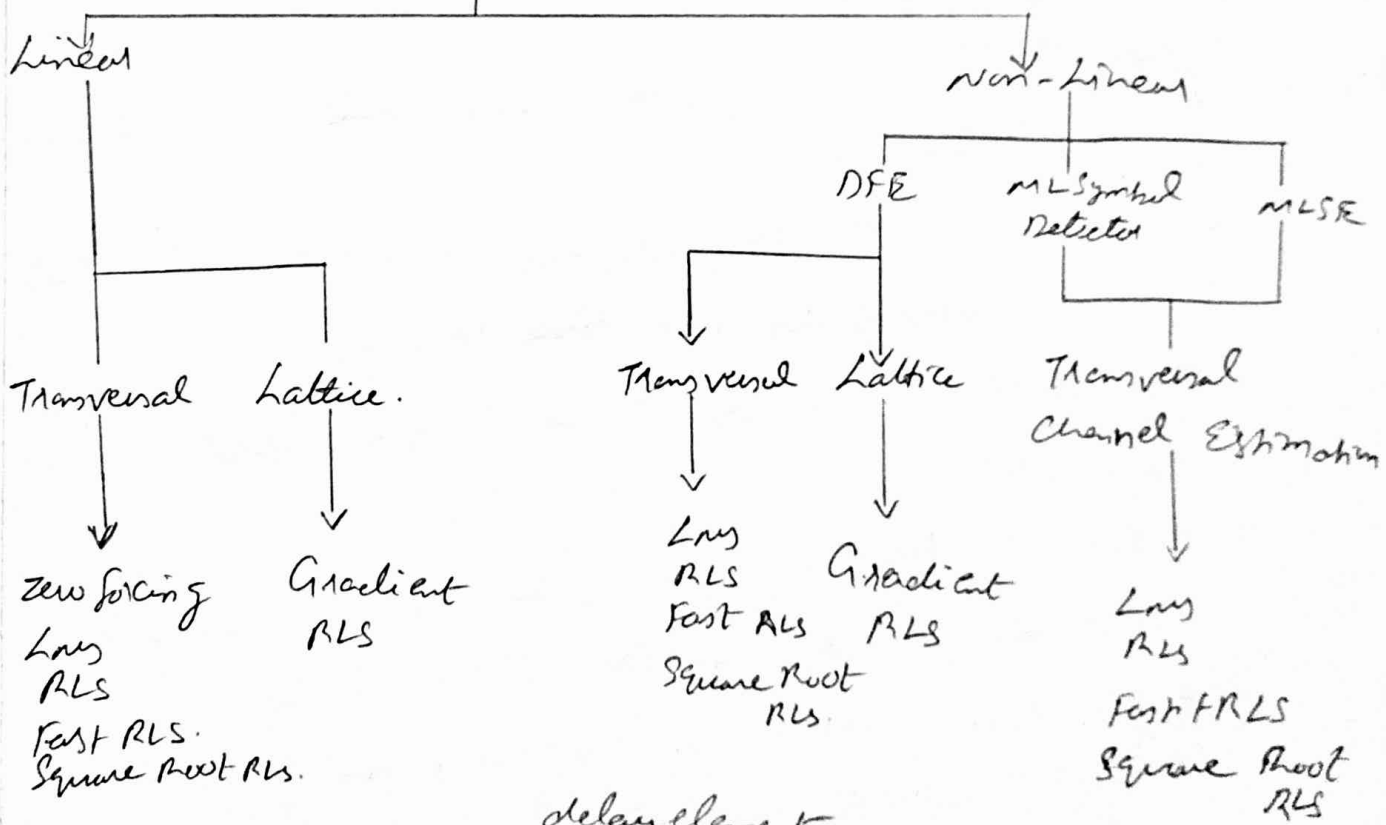 Linear
Non-Linear
DFE
ML Symbol
Detector
MLSE
Transversal
Lattice.
Transversal
Lattice
Transversal
Channel Estimation
Zero forcing
LMS
RLS
Fast RLS.
Square Root RLS.
Gradient
RLS
LMS
RLS
Fast RLS
Square Root
RLS.
Gradient
RLS
LMS
RLS
Fast RLS
Square Root
RLS
delay element